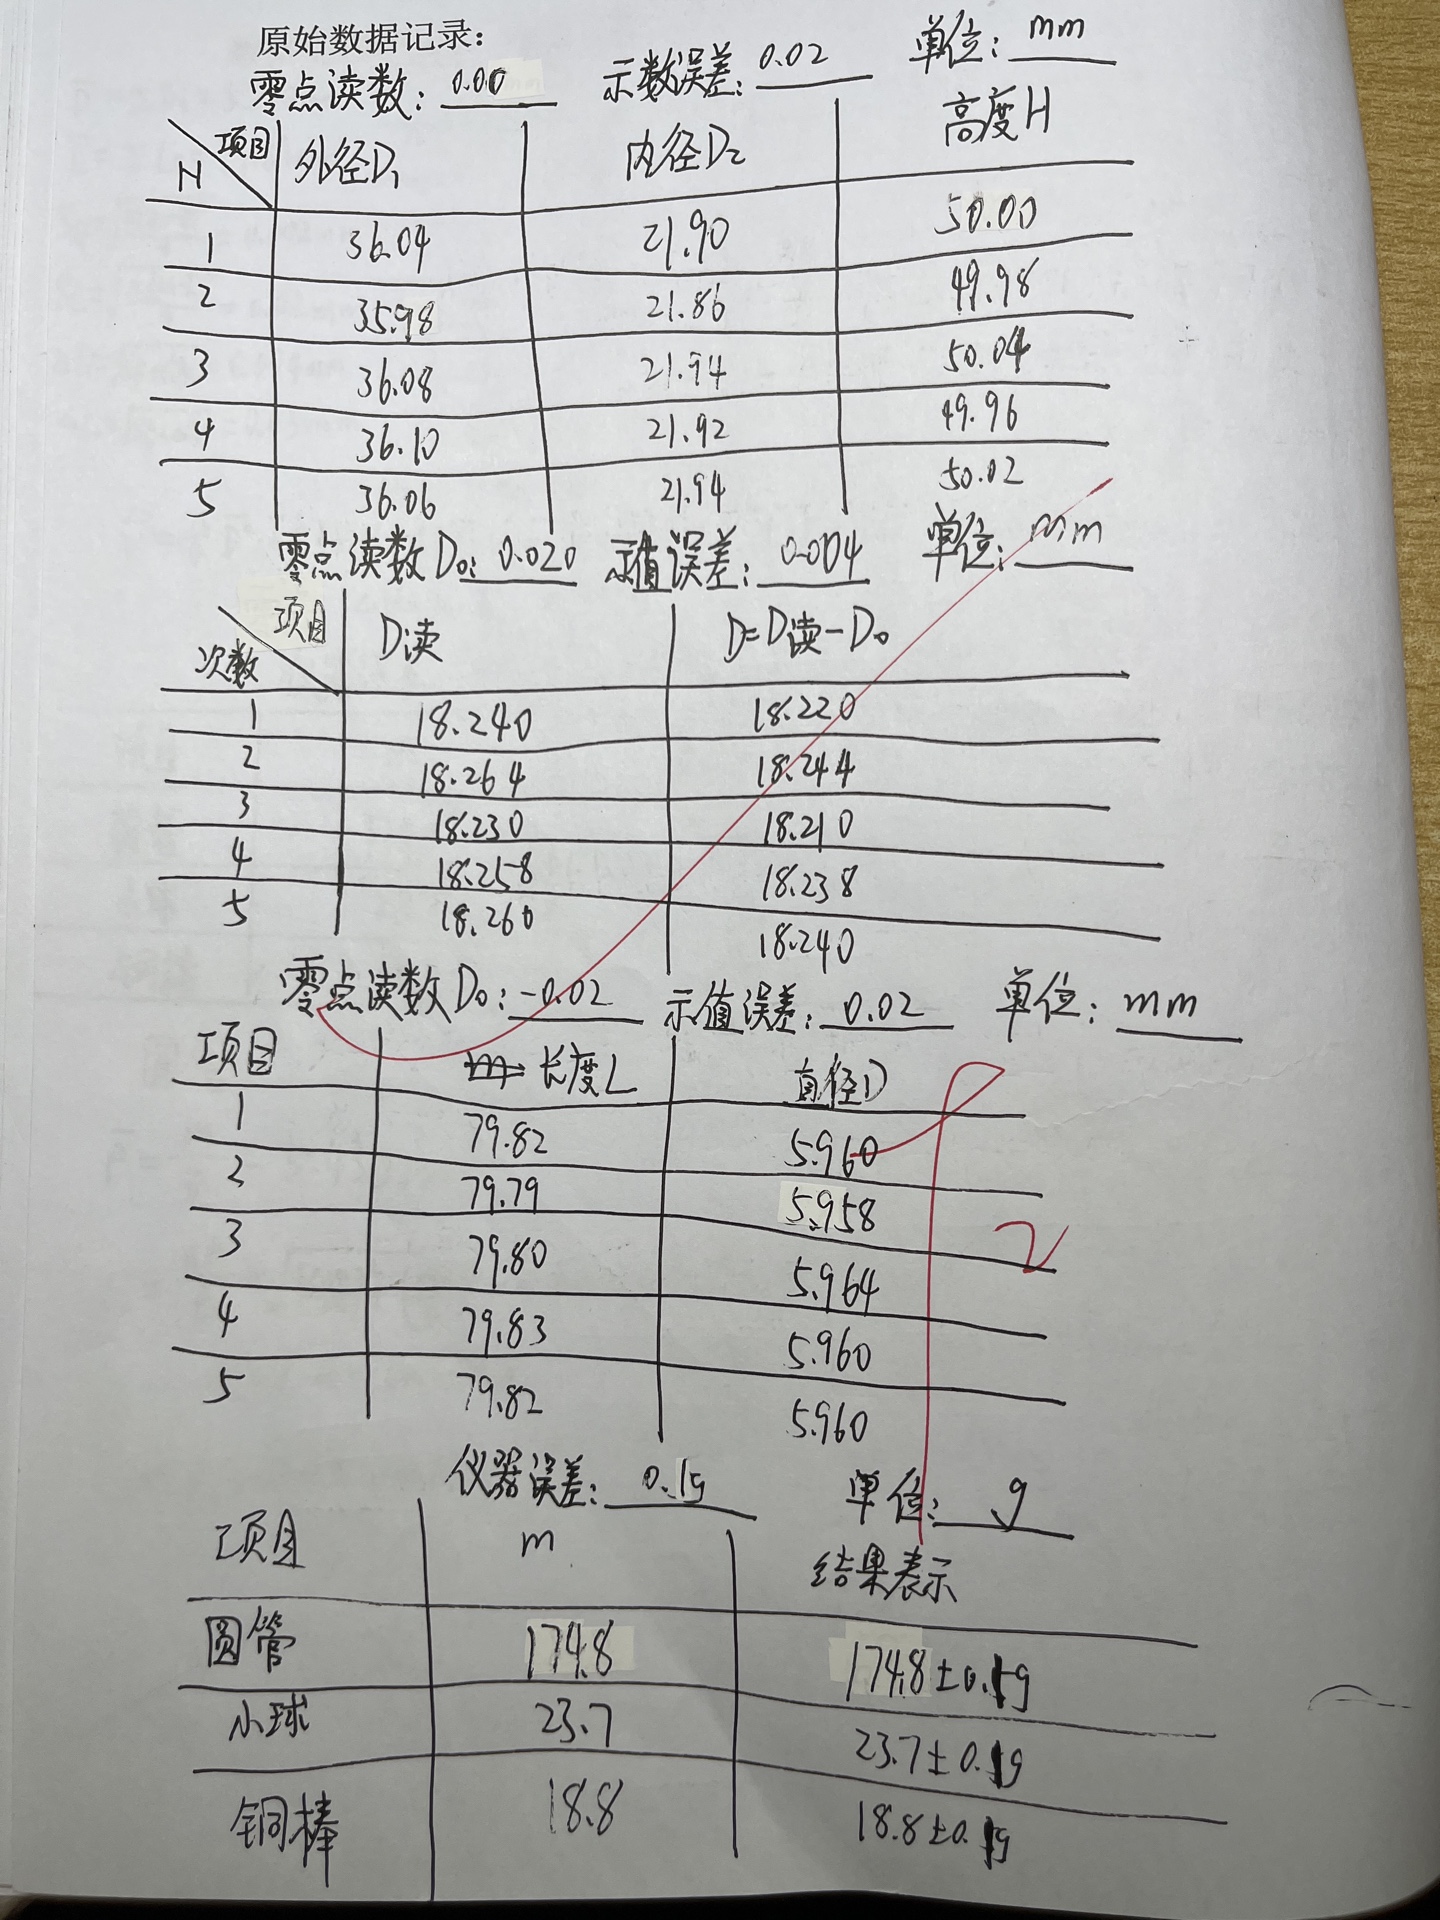 原始数据记录：
零点读数：0.00 示数误差：0.02 单位：mm
项目 外径D₁ 内径D₂ 高度H
N
1 36.04 21.90 50.00
2 35.98 21.86 49.98
3 36.08 21.94 50.04
4 36.10 21.92 49.96
5 36.06 21.94 50.02
零点读数D₀：0.020 示值误差：0.004 单位：mm
项目 D读 D=D读-D₀
次数
1 18.240 18.220
2 18.264 18.244
3 18.230 18.210
4 18.258 18.238
5 18.260 18.240
零点读数D₀：-0.02 示值误差：0.02 单位：mm
项目 长度L 直径D
1 79.82 5.960
2 79.79 5.958
3 79.80 5.964
4 79.83 5.960
5 79.82 5.960
仪器误差：0.1g 单位：g
项目 m 结果表示
圆管 174.8 174.8±0.1g
小球 23.7 23.7±0.1g
铜棒 18.8 18.8±0.1g